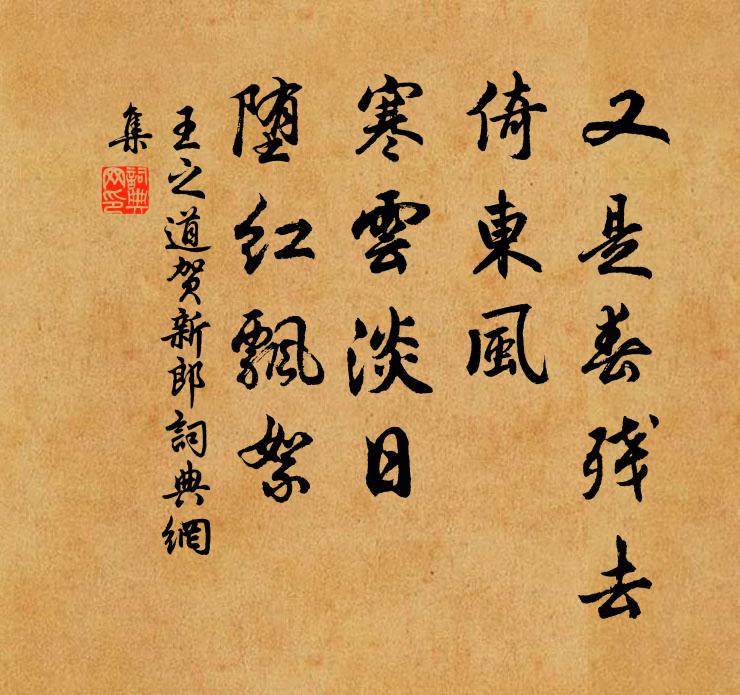 又是春残去
倚東風
寒雲淡日
堕红飄絮
王之道賀新郎詞典網
集
詞典
网印